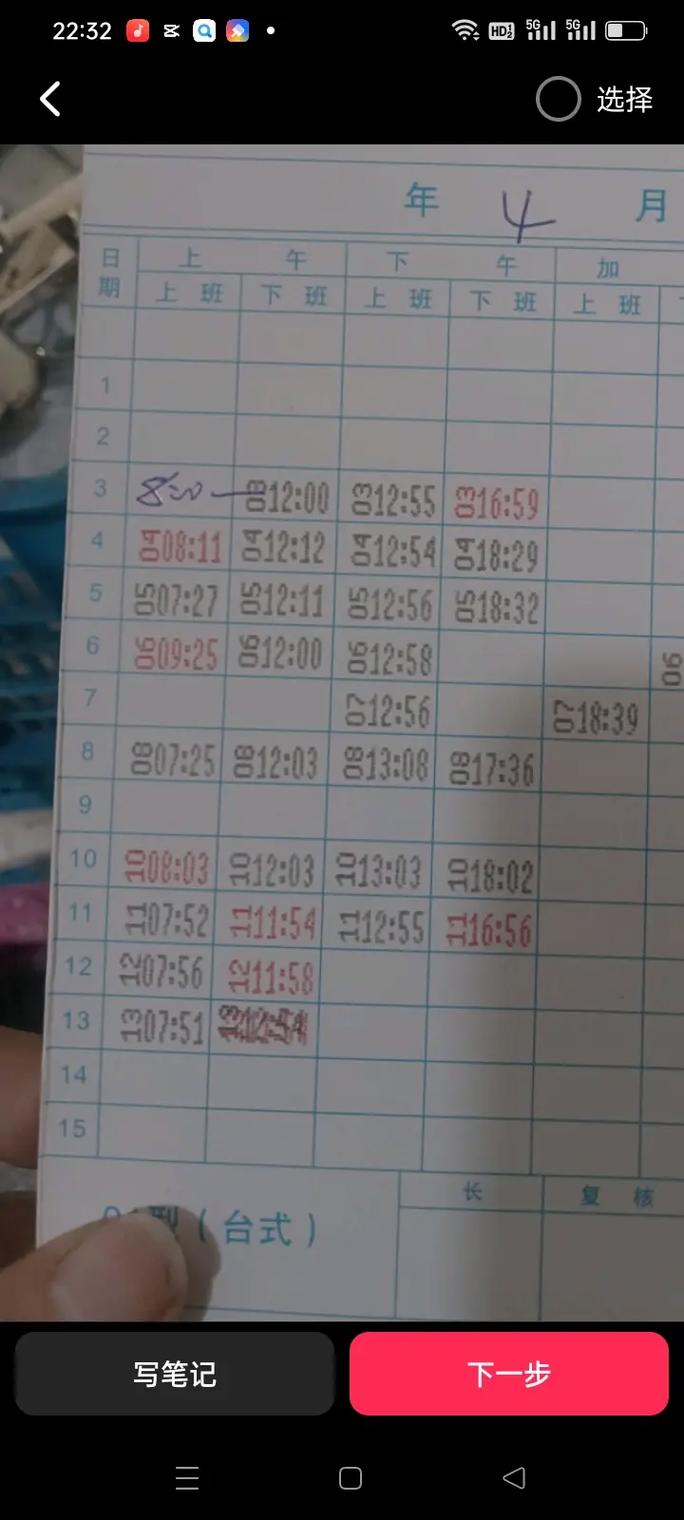 22:32 HD 5G 5G
选择
年 4 月
日期 上 午 下 午 加
上 班 下 班 上 班 下 班 上 班
1
2
3 8:00 0312:00 0312:55 0316:59
4 0408:11 0412:12 0412:54 0418:29
5 0507:27 0512:11 0512:56 0518:32
6 0609:25 0612:00 0612:58 06
7 0712:56 0718:39
8 0807:25 0812:03 0813:08 0817:36
9
10 1008:03 1012:03 1013:03 1018:02
11 1107:52 1111:54 1112:55 1116:56
12 1207:56 1211:58
13 1307:51
14
15
长 复 核
型(台式)
写笔记 下一步